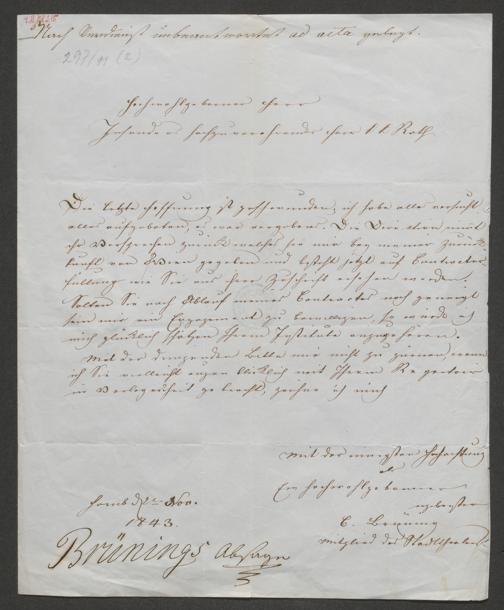 Nach unbeantwortet ad acta gelegt.
297/11 (2)
Hochwohlgeborner Herr
hochzuverehrender Herr Rath
Die letzte Hoffnung ist geschwunden, ich habe alles versucht
alles aufgeboten, es war vergebens. Die Direktion nimt
ihr Versprechen zurück welches sie mir bey meiner Zurück-
kunft von Wien gegeben und besteht jetzt auf Contracts-
füllung wie Sie aus ihrer Zuschrift ersehen werden.
Sollten Sie nach Ablauf meines Contractes noch geneigt
sein mir ein Engagement zu bewilligen, so würde ich
mich glücklich schätzen Ihrem Institute anzugehören.
Mit der dringenden Bitte mir nicht zu zürnen, wenn
ich Sie vielleicht augenblicklich mit Ihrem Repertoir
in Verlegenheit gebracht, zeichne ich mich
Mit der innigsten Hochachtung
als
Ew Hochwohlgeboren
C. Brüning
Mitglied des Stadttheaters
Nov.
1843.
Brünings Absage